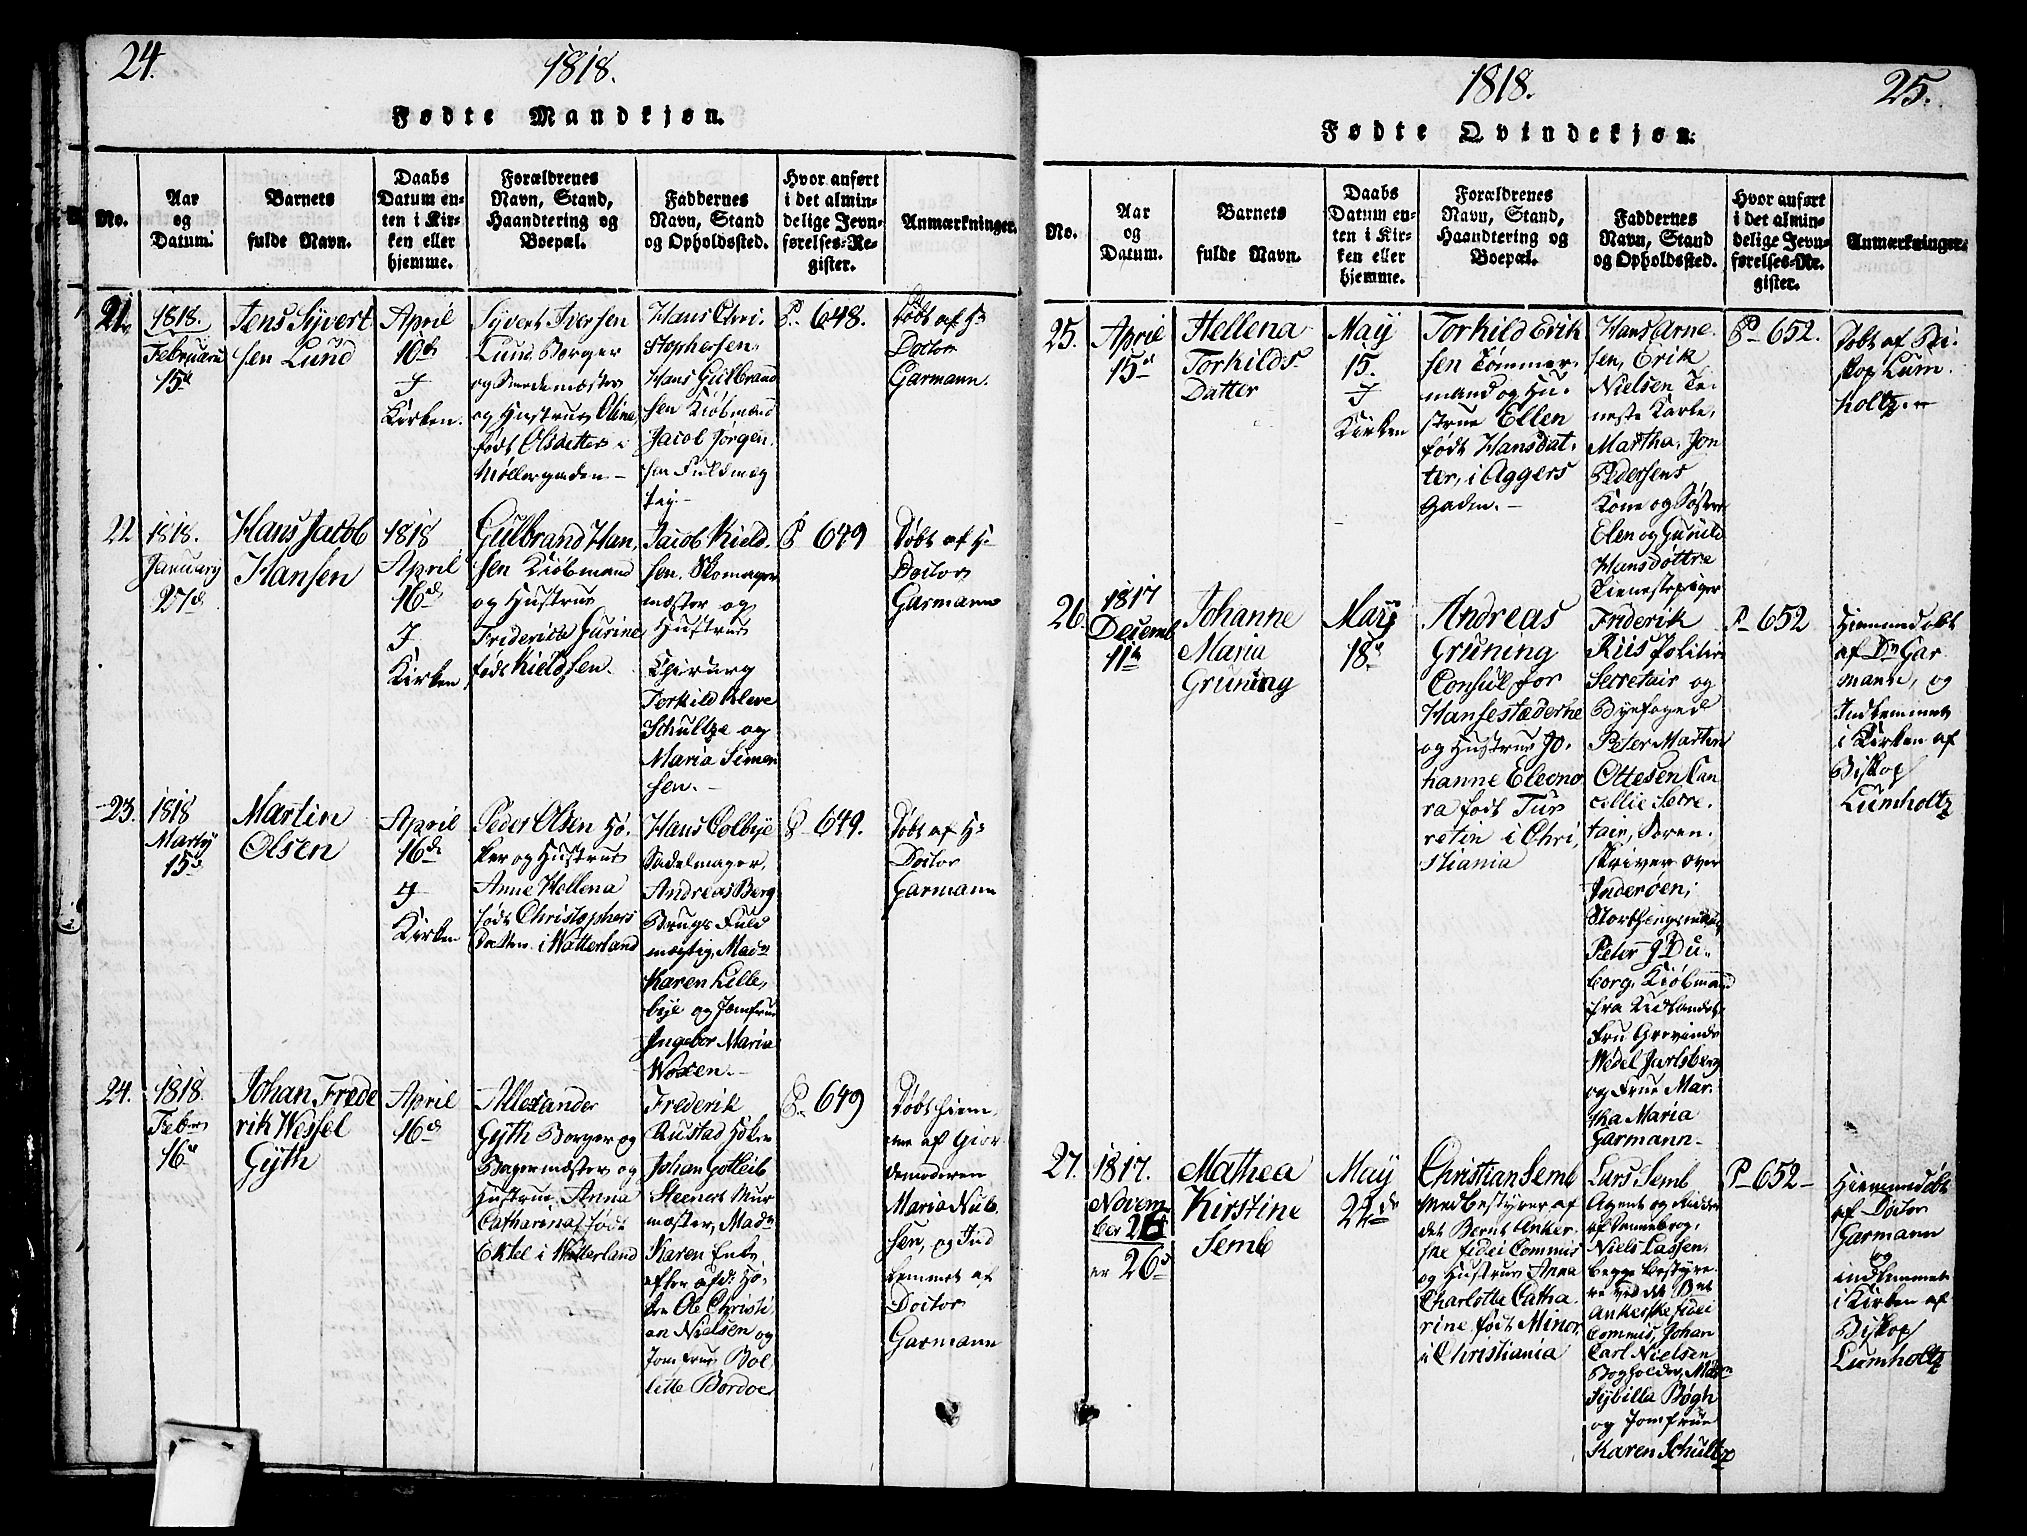 24.
1818.
Fødte Mandkjøn.
No.
Aar
og
Datum.
Barnets
fulde Navn.
Daabs
Datum en-
ten i Kir-
ken eller
hjemme.
Forældrenes
Navn, Stand,
Haandtering og
Boepæl.
Faddernes
Navn, Stand
og Opholdssted.
Hvor anført
i det almin-
delige Jevn-
førelses-Re-
gister.
Anmærkninger.
21.
1818.
Februari
15d
Jens Syvert
sen Lund
April
10de
I
Kirken.
Syvert Iversen
Lund Borger
og Smedemæster
og Hustrue Oline
født Olsdatter i
Møllergaden –
Hans Chri-
stophersen,
Hans Gulbrand
sen Kiøbmand
Jacob Jørgen-
sen Fuldmæg
tig –
P. 648.
Døbt af Hr
Doctor
Garmann.
22
1818.
January
27d
Hans Jacob
Hansen
1818
April
16de
I
Kirken
Gulbrand Han,
sen Kiøbmand
og Hustrue
Friderike Gurine
født Kieldsen.
Jacob Kield-
sen, Skomager
mæster og
Hustrue
Chirurg
Torkild Kleve
Schultze og
Maria Simon
sen. –
P 649
Døbt af Hr
Doctor
Garmann
23.
1818
Marty
15d
Martin
Olsen
April
16de
I
Kirken
Peder Olsen Hø-
ker og Hustrue
Anne Hellena
født Christophers
Datter i Watterland
Hans Colbye
Sadelmager,
Andreas Berg
Brugs Fuld
mægtig, Madm
Karen Lille,
bye og Jomfrue
Ingebor Maria
Woxen. –
P 649.
Døbt af Hr
Doctor
Garmann
24.
1818.
Febr
16d
Johan Frede
rik Wessel
Gyth
April
16de
Allexander
Gyth Borger og
Bagermæster og
Hustrue Anna
Catharina født
Ektel i Watterland
Frederik
Rustad Høker
Johan Gotleib
Steenert Mur
mæster, Madm
Karen Enke
efter afd: Hø-
ker Ole Christi-
an Nielsen og
Jomfrue Bol
lette Bordoe
P. 649
Døbt hiem
me af Gior
demoderen
Maria Niel-
sen, og Ind
lemmet af
Doctor
Garmann
1818.
25.
Fødte Qvindekjøn.
No.
Aar
og
Datum.
Barnets
fulde Navn.
Daabs
Datum en-
ten i Kir-
ken eller
hjemme.
Forældrenes
Navn, Stand,
Haandtering og
Boepæl.
Faddernes
Navn, Stand
og Opholdssted.
Hvor anført
i det almin-
delige Jevn-
førelses-Re-
gister.
Anmærkninger.
25.
April
15d
Hellena
Torkilds
Datter
May
15.
I
Kirken
Torkild Erik
sen Tømmer-
mand og Hu-
strue Ellen
født Hansdat-
ter, i Aggers
Gaden. –
Hans Arne-
sen, Erik
Nielsen Tie-
neste Karle,
Martha, Jon
Pedersens
Kone og Søstre
Elen og Gunild
Hansdøttre
Tienestepiger
P 652.
Døbt af Bi-
skop Lum-
holtz. –
26.
1817
Decemb
11te
Johanne
Maria
Gruning
May
18d
Andreas
Gruning
Consul for
Hansestæderne
og Hustrue Jo-
hanne Eleono
ra født Tur
retin i Chri,
stiania
Friderik
Riis Politie
Secretair og
Byefoged
Peter Martin
Ottesen Can
cellie Secre-
tair, Soren-
skriver over
Inderøen;
Storthingsmand
Peter J Du-
borg, Kiøbmand
fra
Fru Grevinde
Wedel Jarlsberg
og Frue Mar-
tha Maria
Garmann –
P 652
Hiemmedøbt
af Dr Gar
mann, og
Indlemmet
i Kirken af
Biskop
Lumholtz
27.
1817.
Novem-
ber
er 26d
Mathea
Kirstine
Semb
May
22de
Christian Semb
Medbestyrer af
det Bernt Anker-
ske fidei Commis
og Hustrue Anna
Charlotta Catha-
rine født Minor
i Christiania
Lars Semb
Agent og Ridder
af Danebrog,
Niels Lassen,
begge bestyre-
re ved det Bnt
Ankerske fidei
Commis, Johan
Carl Nielsen
Bogholder, Madm
Sybilla Bøgh
og Jomfrue
Karen Schultz
P 652 –
Hiemmedøbt
af Doctor
Garmann
og
indlemmet
i Kirken af
Biskop
Lumholtz